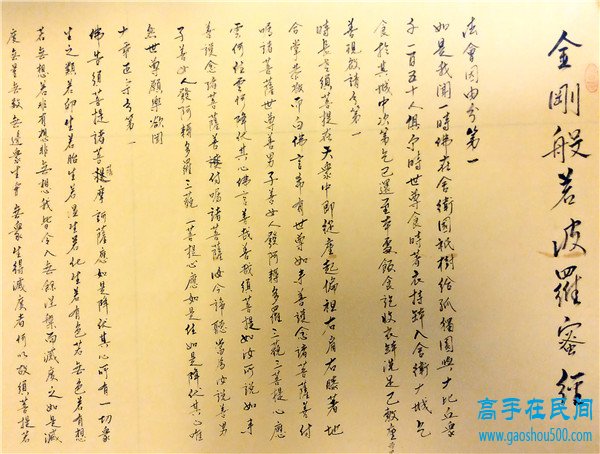 金剛般若波羅蜜經
法會因由分第一
如是我聞一時佛在舍衛國祇樹給孤獨園與大比丘衆
千二百五十人俱尔時世尊食時著衣持鉢入舍衛大城乞
食於其城中次第乞已還至本處飯食訖收衣鉢洗足已敷座
善現啟請分第
時長老須菩提在大衆中即從座起偏袒右肩右膝著地
合掌恭敬而白佛言希有世尊如来善護念諸菩薩善付
嘱諸菩薩世尊善男子善女人發阿耨多羅三藐三菩提心應
雲何住雲何降伏其心佛言善哉善哉須菩提如汝所說如来
善護念諸菩薩善付嘱諸菩薩汝今諦聽當為汝說善男
子善女人發阿耨多羅三藐三菩提心應如是住如是降伏其心唯
然世尊願樂欲聞
大乘正宗分第
佛告須菩提諸菩提摩訶薩應如是降伏其心所有一切衆
生之類若卵生若胎生若濕生若化生若有色若無色若有想
若無想若非有想非無想我皆令入無餘涅槃而滅度之如是滅
度無量無數無邊衆生實無衆生得滅度者何以故須菩提若
高手在民間
www.gaoshou500.com